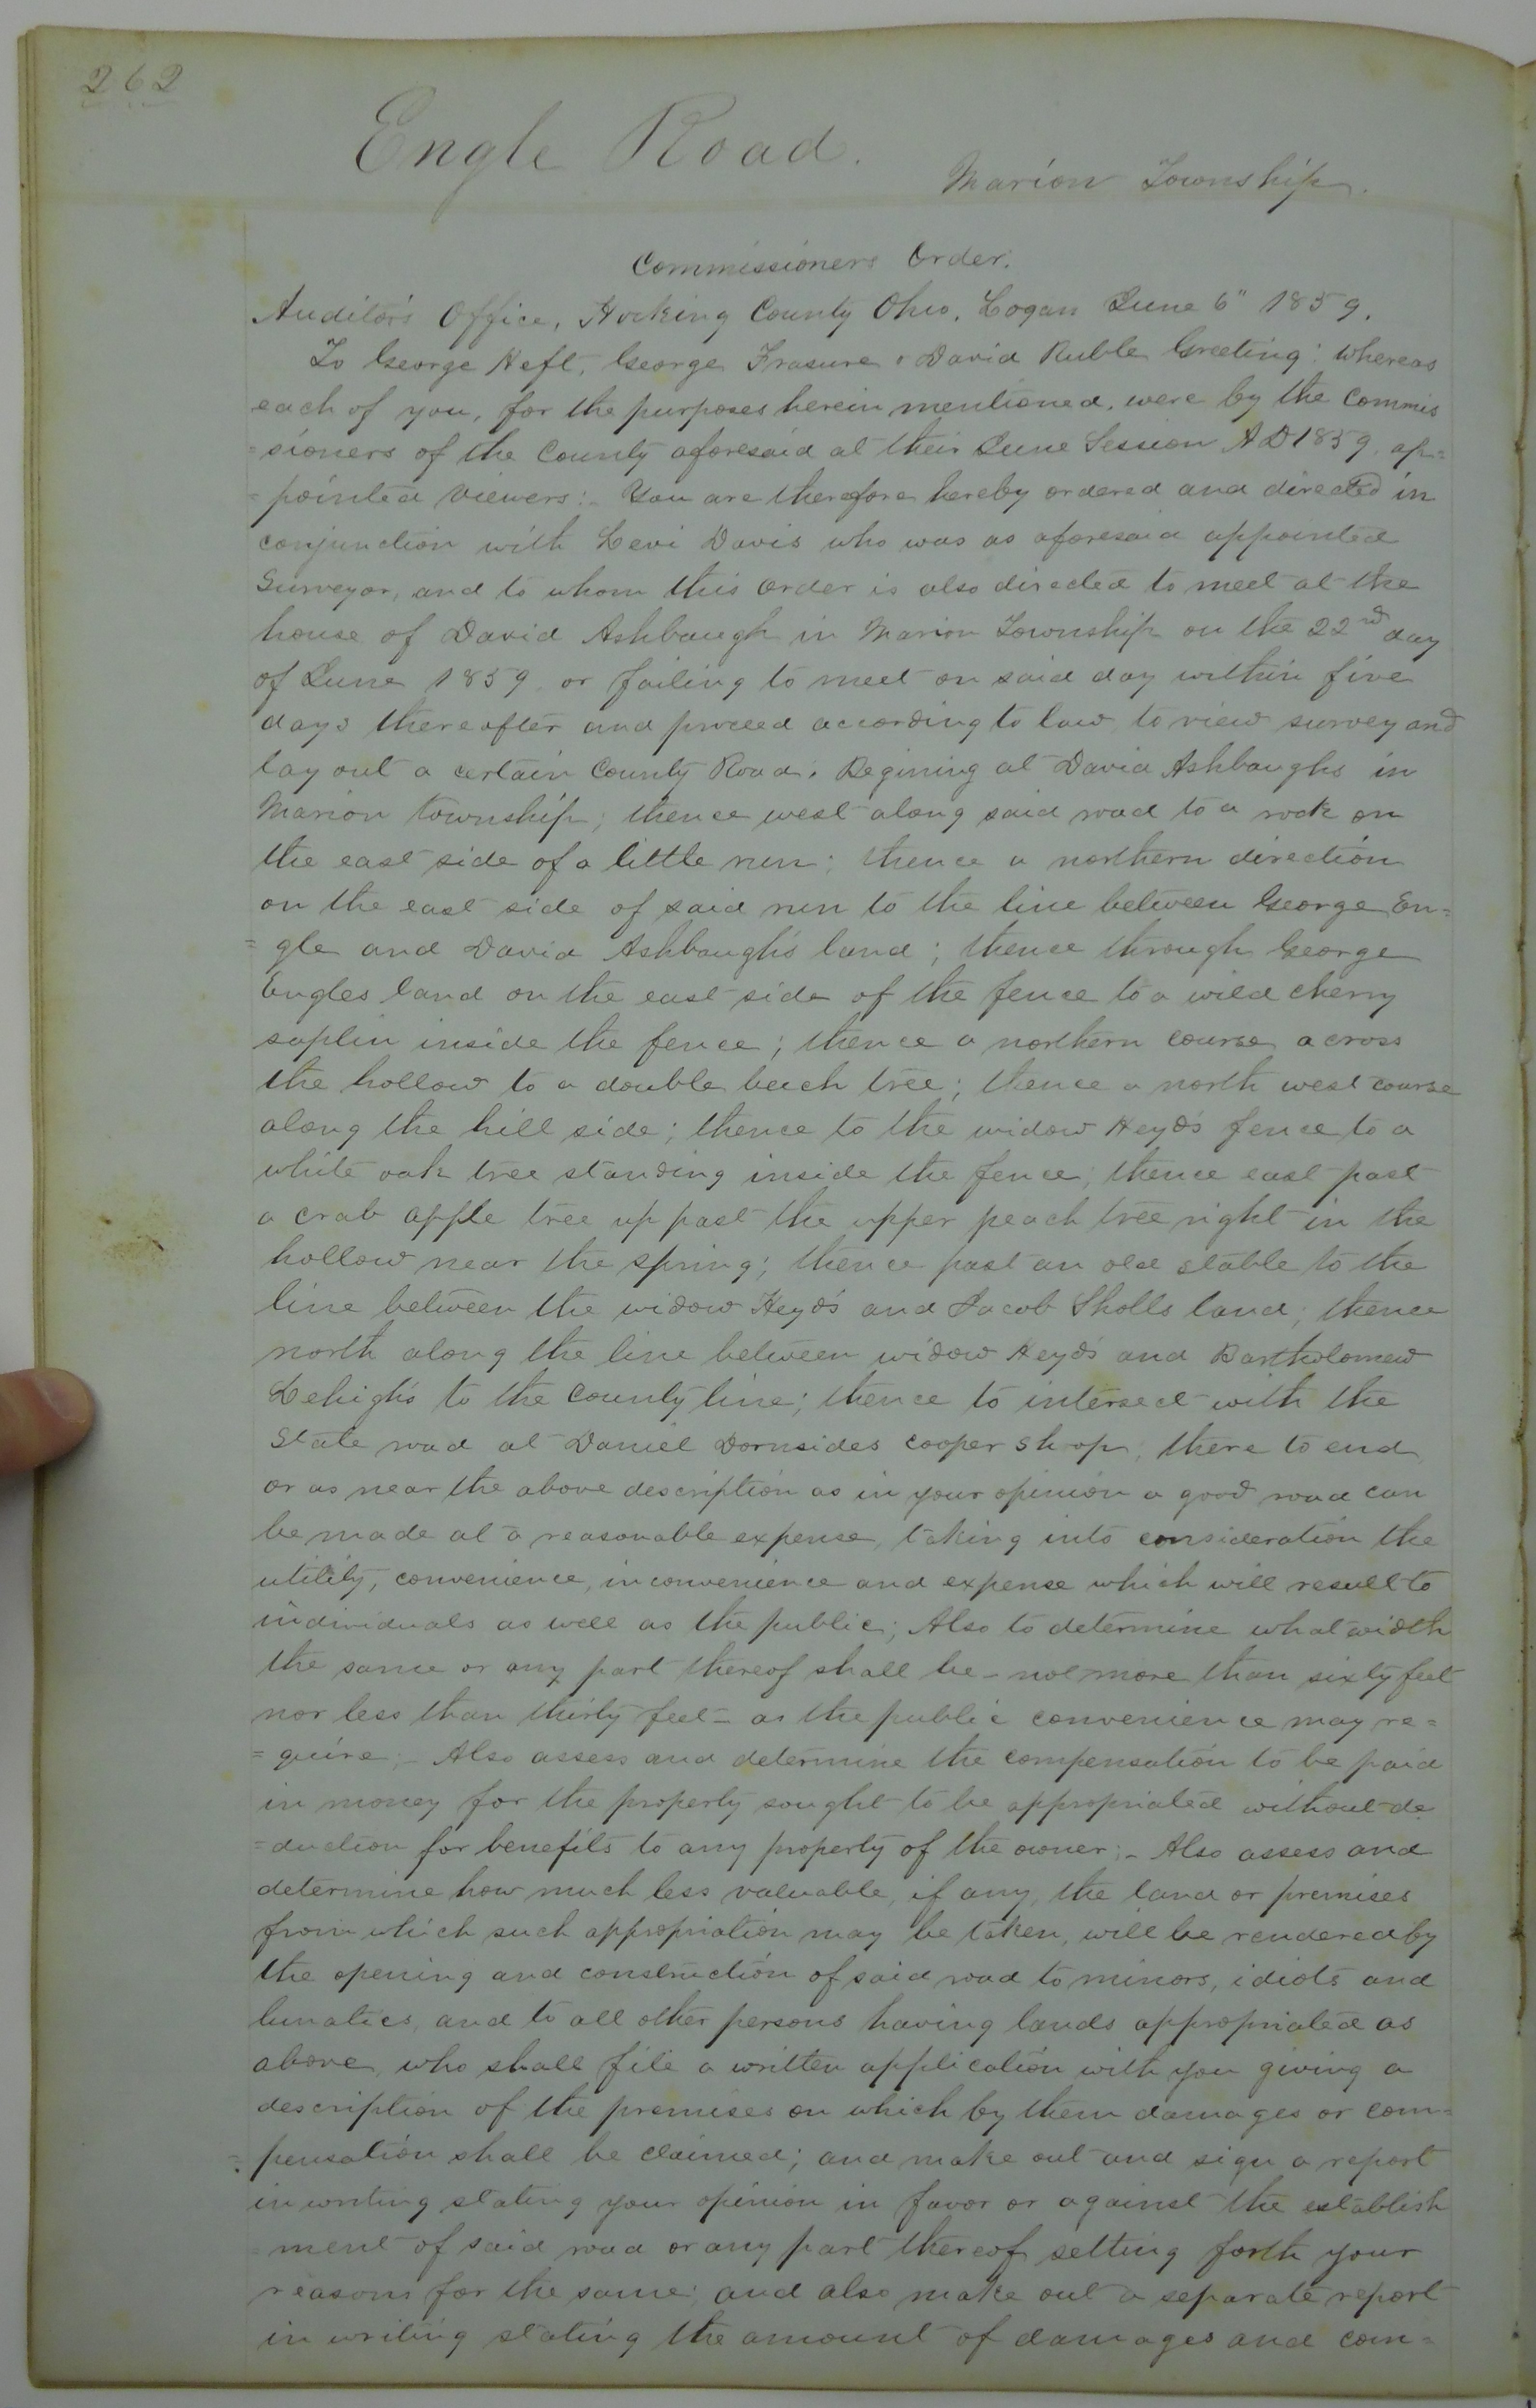 262
Engle Road.
Marion Township.
Commissioners Order.
Auditor's Office, Hocking County Ohio, Logan June 6" 1859.
To George Heft, George Frasure & David Ruble Greeting: Whereas
each of you, for the purposes herein mentioned, were by the Commis
=sioners of the County aforesaid at their June Session A D 1859, ap=
=pointed viewers:- You are therefore hereby ordered and directed in
conjunction with Levi Davis who was as aforesaid appointed
Surveyor, and to whom this order is also directed to meet at the
house of David Ashbaugh in Marion Township on the 22nd day
of June 1859 or failing to meet on said day within five
days thereafter and proceed according to law to view survey and
lay out a certain County Road. Begining at David Ashbaughs in
Marion township; thence west along said road to a rock on
the east side of a little run; thence a northern direction
on the east side of said run to the line between George En=
=gle and David Ashbaugh's land; thence through George
Engles land on the east side of the fence to a wild cherry
saplin inside the fence; thence a northern course across
the hollow to a double beech tree; thence a north west course
along the hill side; thence to the widow Heyd's fence to a
white oak tree standing inside the fence; thence east past
a crab apple tree up past the upper peach tree right in the
hollow near the spring; thence past an old stable to the
line between the widow Heyd's and Jacob Sholls land; thence
north along the line between widow Heyd's and Bartholomew
Lehigh's to the County line; thence to intersect with the
State road at Daniel Dornsides cooper shop, there to end
or as near the above description as in your opinion a good road can
be made at a reasonable expense, taking into consideration the
utility, convenience, inconvenience and expense which will result to
individuals as well as the public; Also to determine what width
the same or any part thereof shall be - not more than sixty feet
nor less than thirty feet - as the public convenience may re=
=quire;- Also assess and determine the compensation to be paid
in money for the property sought to be appropriated without de
=duction for benefits to any property of the owner;- Also assess and
determine how much less valuable, if any, the land or premises
from which such appropriation may be taken, will be rendered by
the opening and construction of said road to minors, idiots and
lunatics, and to all other persons having lands appropriated as
above, who shall file a written application with you giving a
description of the premises on which by them damages or com=
=pensation shall be claimed; and make out and sign a report
in writing stating your opinion in favor or against the establish
=ment of said road or any part thereof setting forth your
reasons for the same; and also make out a separate report
in writing stating the amount of damages and com=